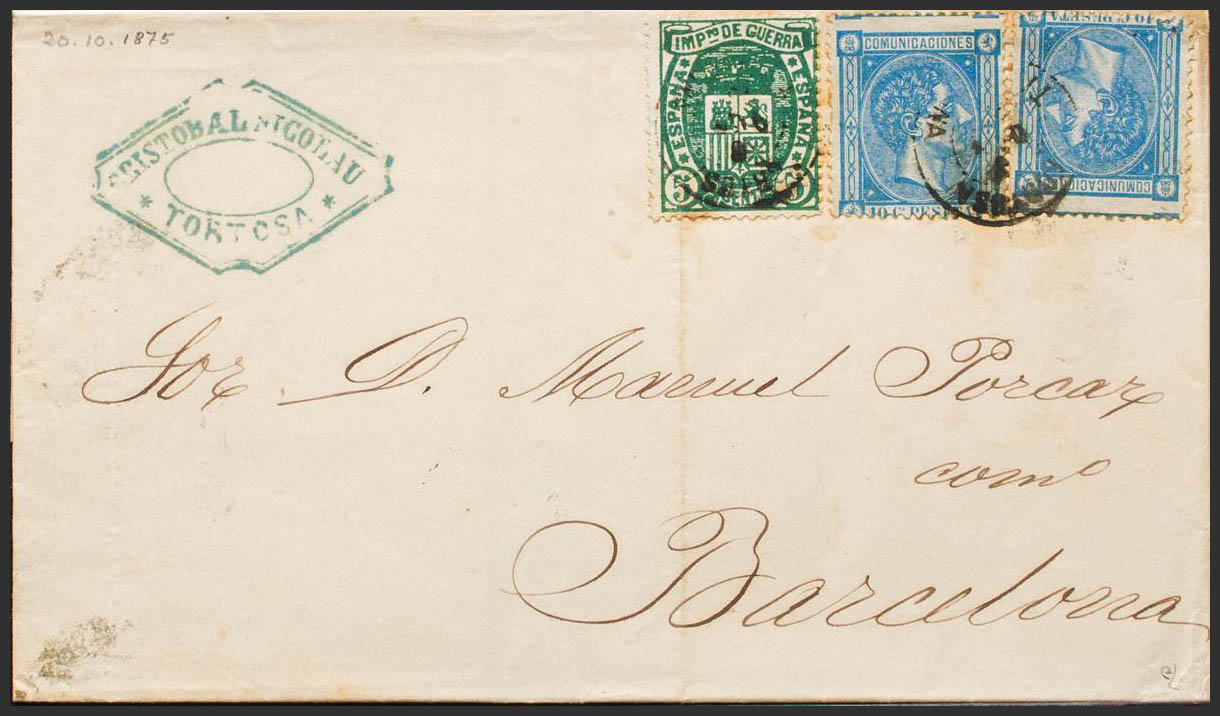 20.10.1875
CRISTOBAL NICOLAU
TORTOSA
IMPTO DE GUERRA
ESPAÑA
ESPAÑA
5
5
COMUNICACIONES
10 C. PESETA
10 C. PESETA
COMUNICACIONES
Sor. D. Manuel Porcar
como
Barcelona